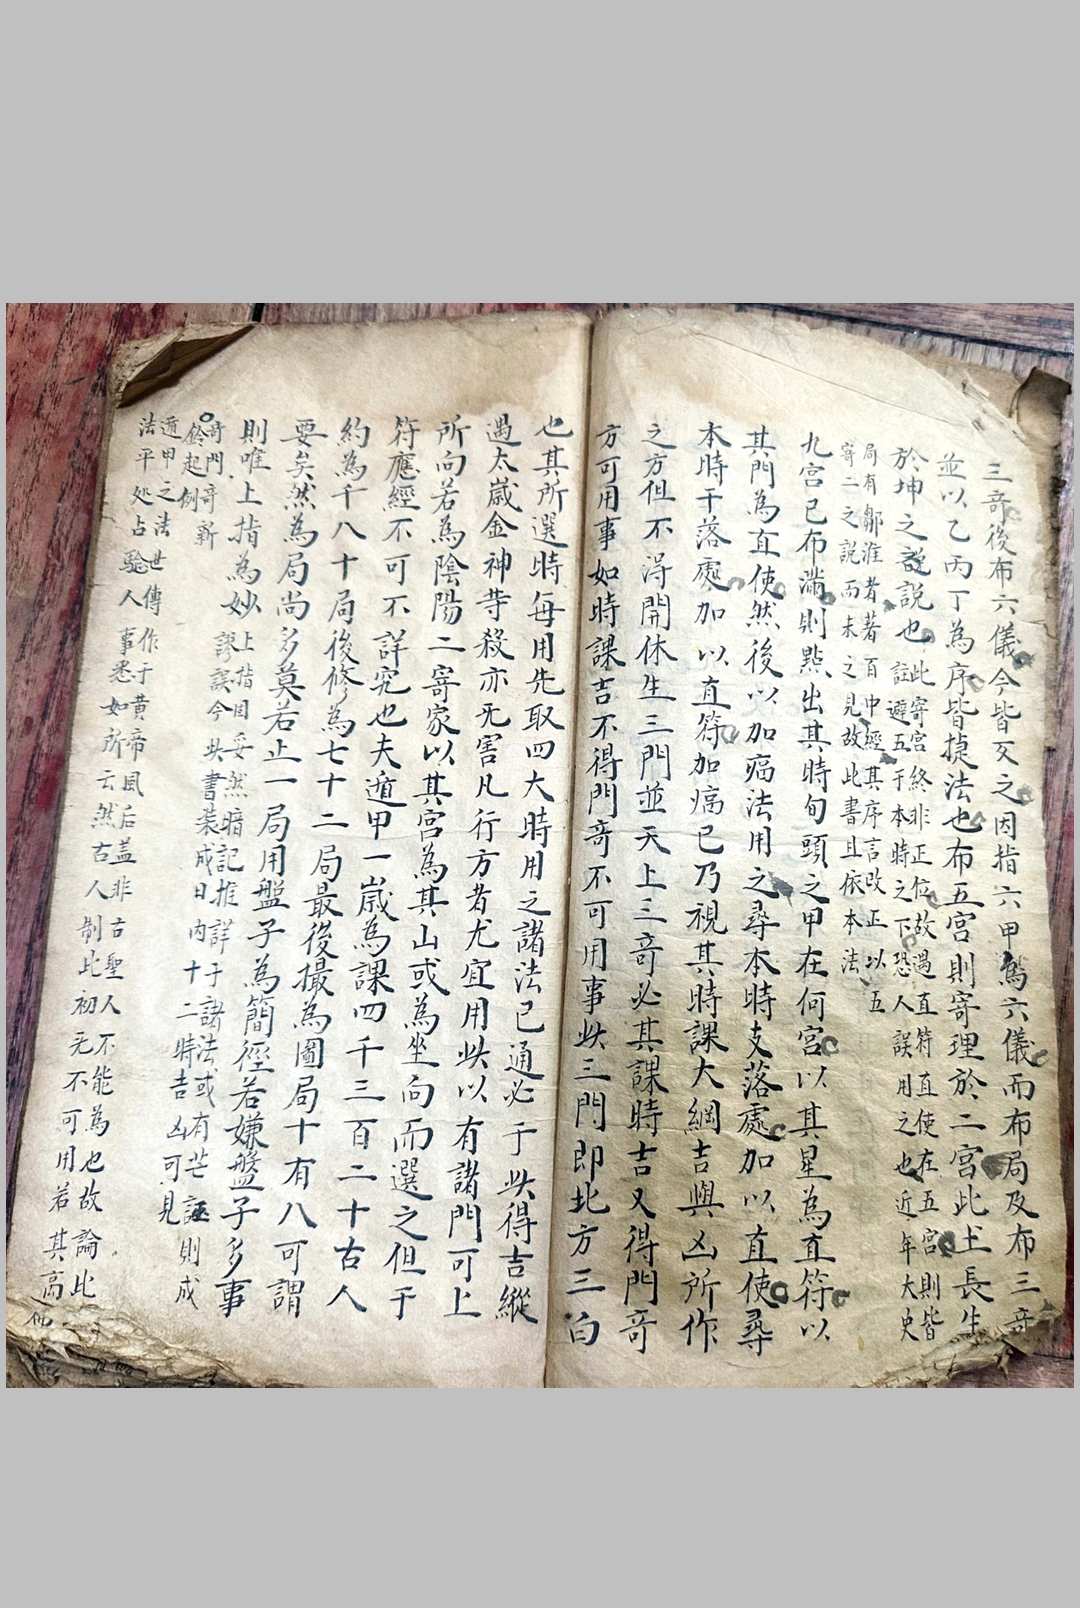 三竒後布六儀今皆交之因指六甲為六儀而布局及布三竒
並以乙丙丁為序皆㨗法也布五宮則寄理於二宮此土長生
於坤之說說也
此寄宮終非正位故遇直符直使在五宮則皆
註避五于本時之下恐人誤用之也近年大史
局有鄒淮者著百中經其序言改正以五
寄二之說而未之見故此書且依本法
九宮已布滿則㸃出其時旬頭之甲在何宮以其星為直符以
其門為直使然後以加㾔法用之尋本時支落處加以直使尋
本時干落處加以直符加㾔已乃視其時課大綱吉與凶所作
之方但不淂開休生三門並天上三竒必其課時吉又得門竒
方可用事如時課吉不得門竒不可用事㡭三門即北方三白
也其所選時每用先取四大時用之諸法已通必于㡭得吉縱
遇太歲金神䓁殺亦无害凡行方者尤宜用㡭以有諸門可上
所向若為陰陽二寄家以其宮為其山或為坐向而選之但于
符應經不可不詳究也夫遁甲一歲為課四千三百二十古人
約為千八十局後修為七十二局最後撮為圖局十有八可謂
要矣然為局尚多莫若止一局用盤子為簡徑若嫌盤子多事
則唯上指為妙
上指固妥然暗記推詳于諸法或有芒誣則成
謬誤今㡭書裝成日內十二時吉凶可見
竒門竒新
鈴起例
遁甲之法世傳作于黄帝風后盖非古聖人不能為也故論比
法平処占驗人事悉如所云然古人制此初无不可用若其高